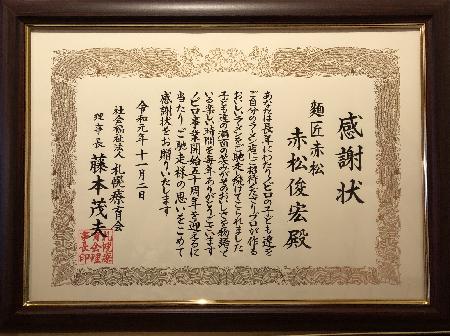 感謝状
麺匠赤松
赤松俊宏殿
あなたは長年にわたりノビロの子ども達を
ご自分のラーメン店にご招待くださりプロが作る
おいしいラーメンをご馳走し続けてこられました
子ども達の満面の笑みがそのおいしさを物語って
いる楽しい時間を毎年ありがとうございます
ノビロ事業開始五十周年を迎えるに
当たりご馳走様の思いをこめて
感謝状をお贈りいたします
令和元年十一月二日
社会福祉法人 札幌療育会
理事長 藤本茂夫